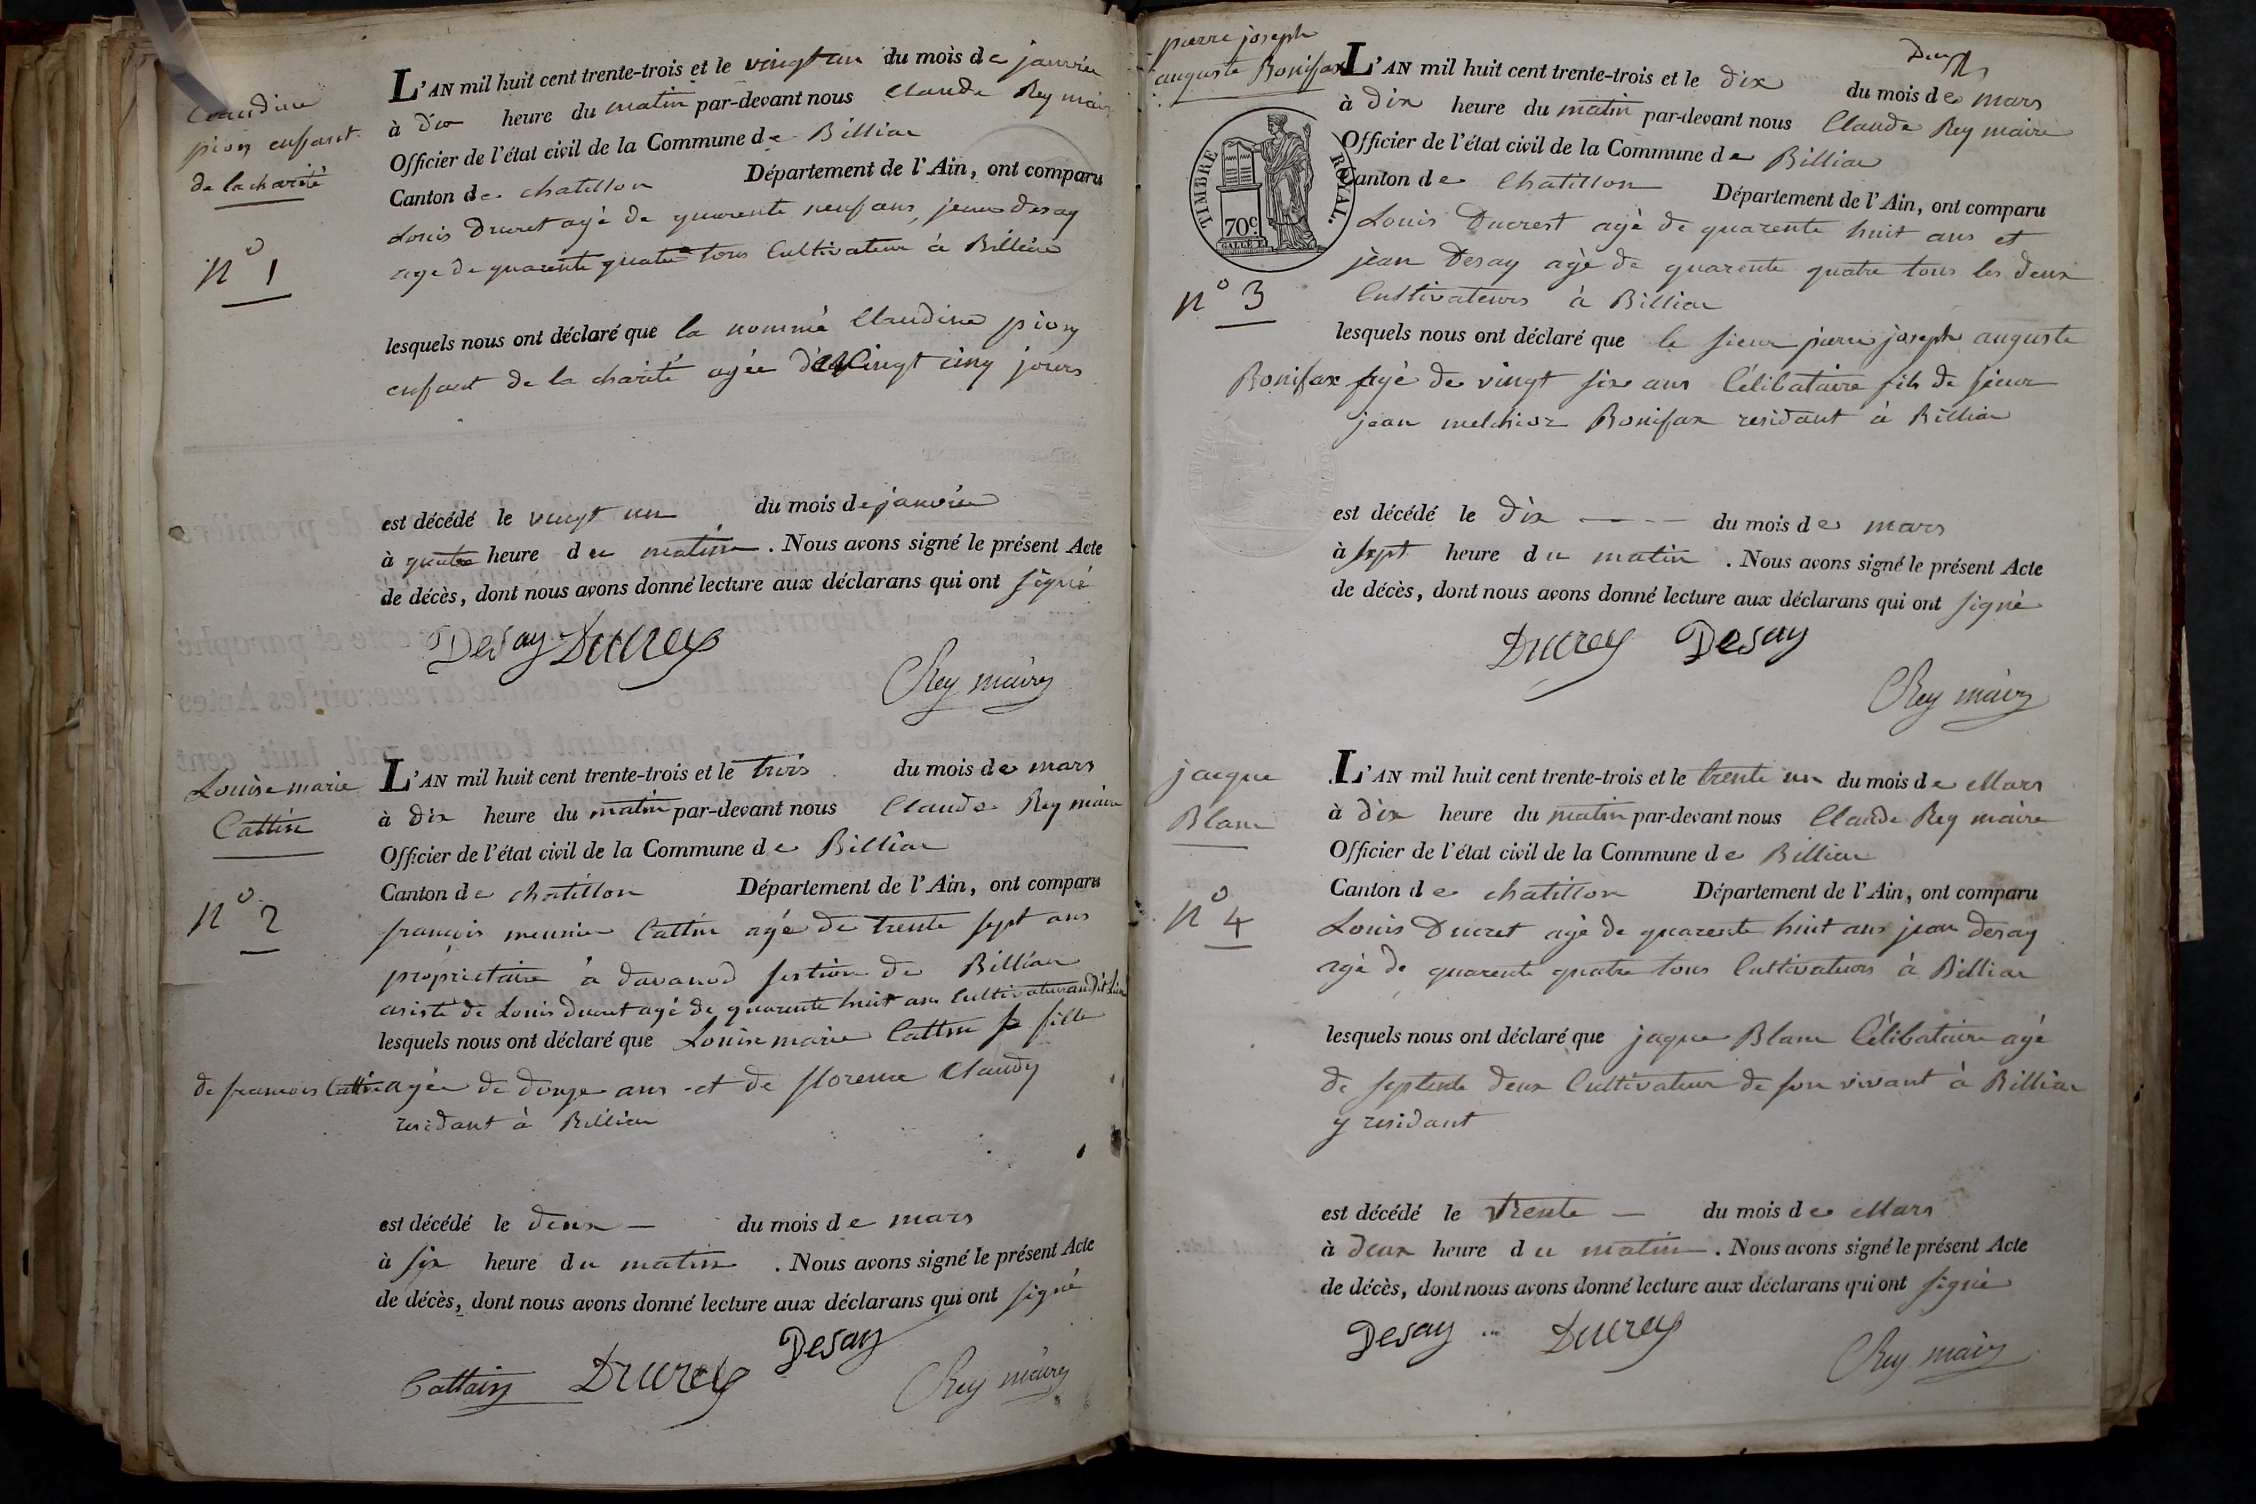 Claudine
pion enfant
de la charité
N° 1
L'AN mil huit cent trente-trois et le vingt un du mois de janvier
à dix heure du matin par-devant nous Claude Rey maire
Officier de l'état civil de la Commune de Billiau
Canton de chatillon Département de l'Ain, ont comparu
Louis Ducret agé de quarente neuf ans, jean desay
age de quarente quatre tous Cultivateur à Billiau
lesquels nous ont déclaré que la nommé Claudine pion
enfant de la charité agée de vingt cinq jours
est décédé le vingt un du mois de janvier
à quatre heure du matin. Nous avons signé le présent Acte
de décès, dont nous avons donné lecture aux déclarans qui ont signé
Desay Ducrey
Rey maire
Louise marie
Cattin
N° 2
L'AN mil huit cent trente-trois et le trois du mois de mars
à dix heure du matin par-devant nous Claude Rey maire
Officier de l'état civil de la Commune de Billiau
Canton de chatillon Département de l'Ain, ont comparu
francois meunier Cattin agé de trente sept ans
propriétaire à davanod section de Billiau
asisté de Louis ducret agé de quarente huit ans Cultivateur audit Lieu
lesquels nous ont déclaré que Louise marie Cattin fille
de francois Cattin agée de douze ans et de florence Claudy
residant à Billiau
est décédé le deux — du mois de mars
à six heure du matin. Nous avons signé le présent Acte
de décès, dont nous avons donné lecture aux déclarans qui ont signé
Desay
Cattain Ducrey Rey maire
pierre joseph
auguste Bonifax
TIMBRE ROYAL.
70c
N° 3
Deux
L'AN mil huit cent trente-trois et le dix du mois de mars
à dix heure du matin par-devant nous Claude Rey maire
Officier de l'état civil de la Commune de Billiau
Canton de Chatillon Département de l'Ain, ont comparu
Louis Ducrest agé de quarente huit ans et
jean Desay agé de quarente quatre tous les deux
Cultivateurs à Billiau
lesquels nous ont déclaré que le sieur pierre joseph auguste
Bonifax agé de vingt six ans Célibataire fils de sieur
jean melchior Bonifax residant à Billiau
est décédé le dix — du mois de mars
à sept heure du matin. Nous avons signé le présent Acte
de décès, dont nous avons donné lecture aux déclarans qui ont signé
Ducrey Desay
Rey maire
jacque
Blanc
N° 4
L'AN mil huit cent trente-trois et le trente un du mois de Mars
à dix heure du matin par-devant nous Claude Rey maire
Officier de l'état civil de la Commune de Billiau
Canton de chatillon Département de l'Ain, ont comparu
Louis Ducret agé de quarente huit ans jean desay
agé de quarente quatre tous Cultivateurs à Billiau
lesquels nous ont déclaré que jaque Blanc Célibataire agé
de septente deux Cultivateur de son vivant à Billiau
y residant
est décédé le trente — du mois de Mars
à deux heure du matin. Nous avons signé le présent Acte
de décès, dont nous avons donné lecture aux déclarans qui ont signé
Desay Ducrey
Rey maire